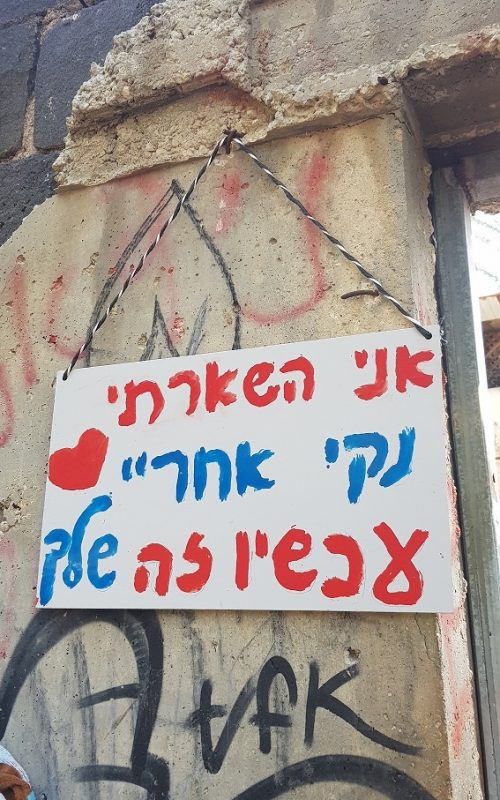 אני השארתי
נקי אחריי
עכשיו זה שלך